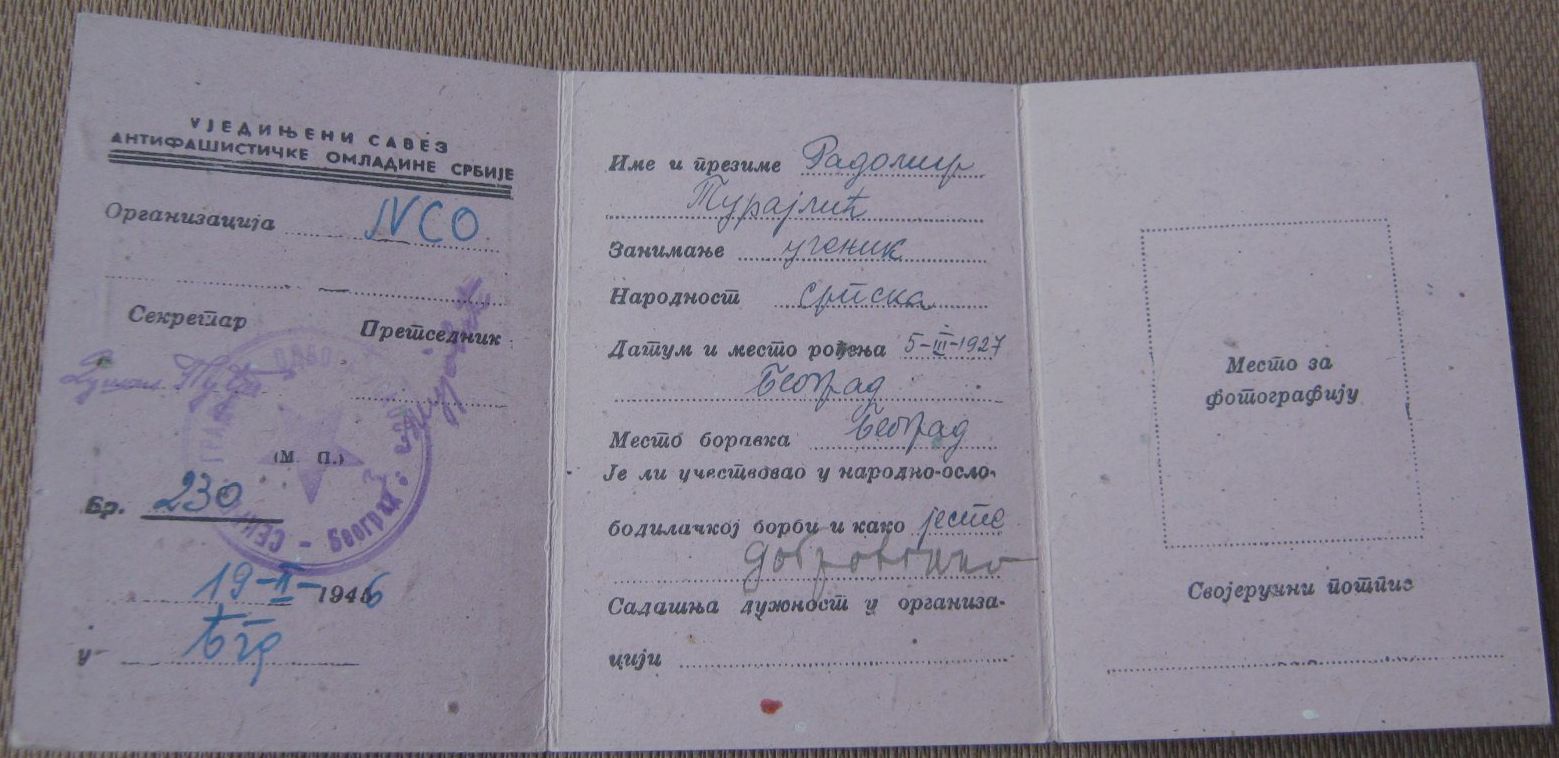 УЈЕДИЊЕНИ САВЕЗ
АНТИФАШИСТИЧКЕ ОМЛАДИНЕ СРБИЈЕ
Организација IVCO
Секретар Претседник
(М. П.)
Београд
Бр. 230
19-II-1946
у Бгд
Име и презиме Радомир
Турајлић
Занимање ученик
Народност српска
Датум и место рођења 5-III-1927
Београд
Место боравка Београд
Је ли учествовао у народно-осло-
бодилачкој борби и како јесте
добровољно
Садашња дужност у организа-
цији
Место за
фотографију
Својеручни потпис